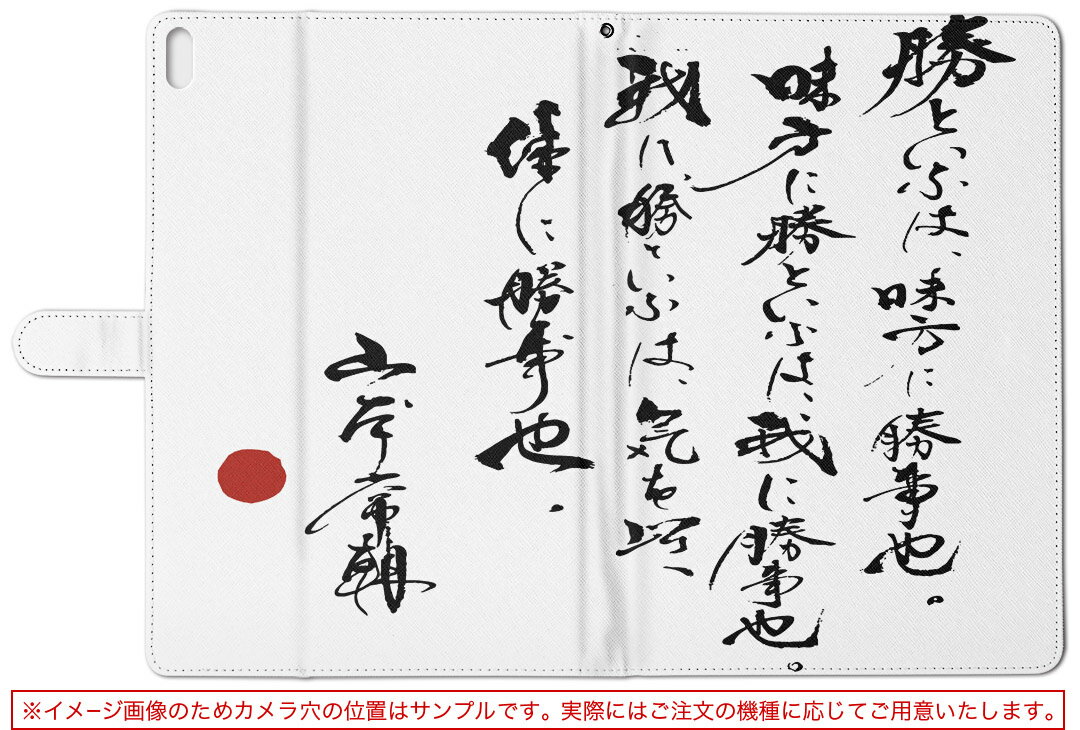 勝といふは、味方に勝事也。
味方に勝といふは、我に勝事也。
我に勝といふは、気を以て
体に勝事也。
山本常朝
※イメージ画像のためカメラ穴の位置はサンプルです。実際にはご注文の機種に応じてご用意いたします。